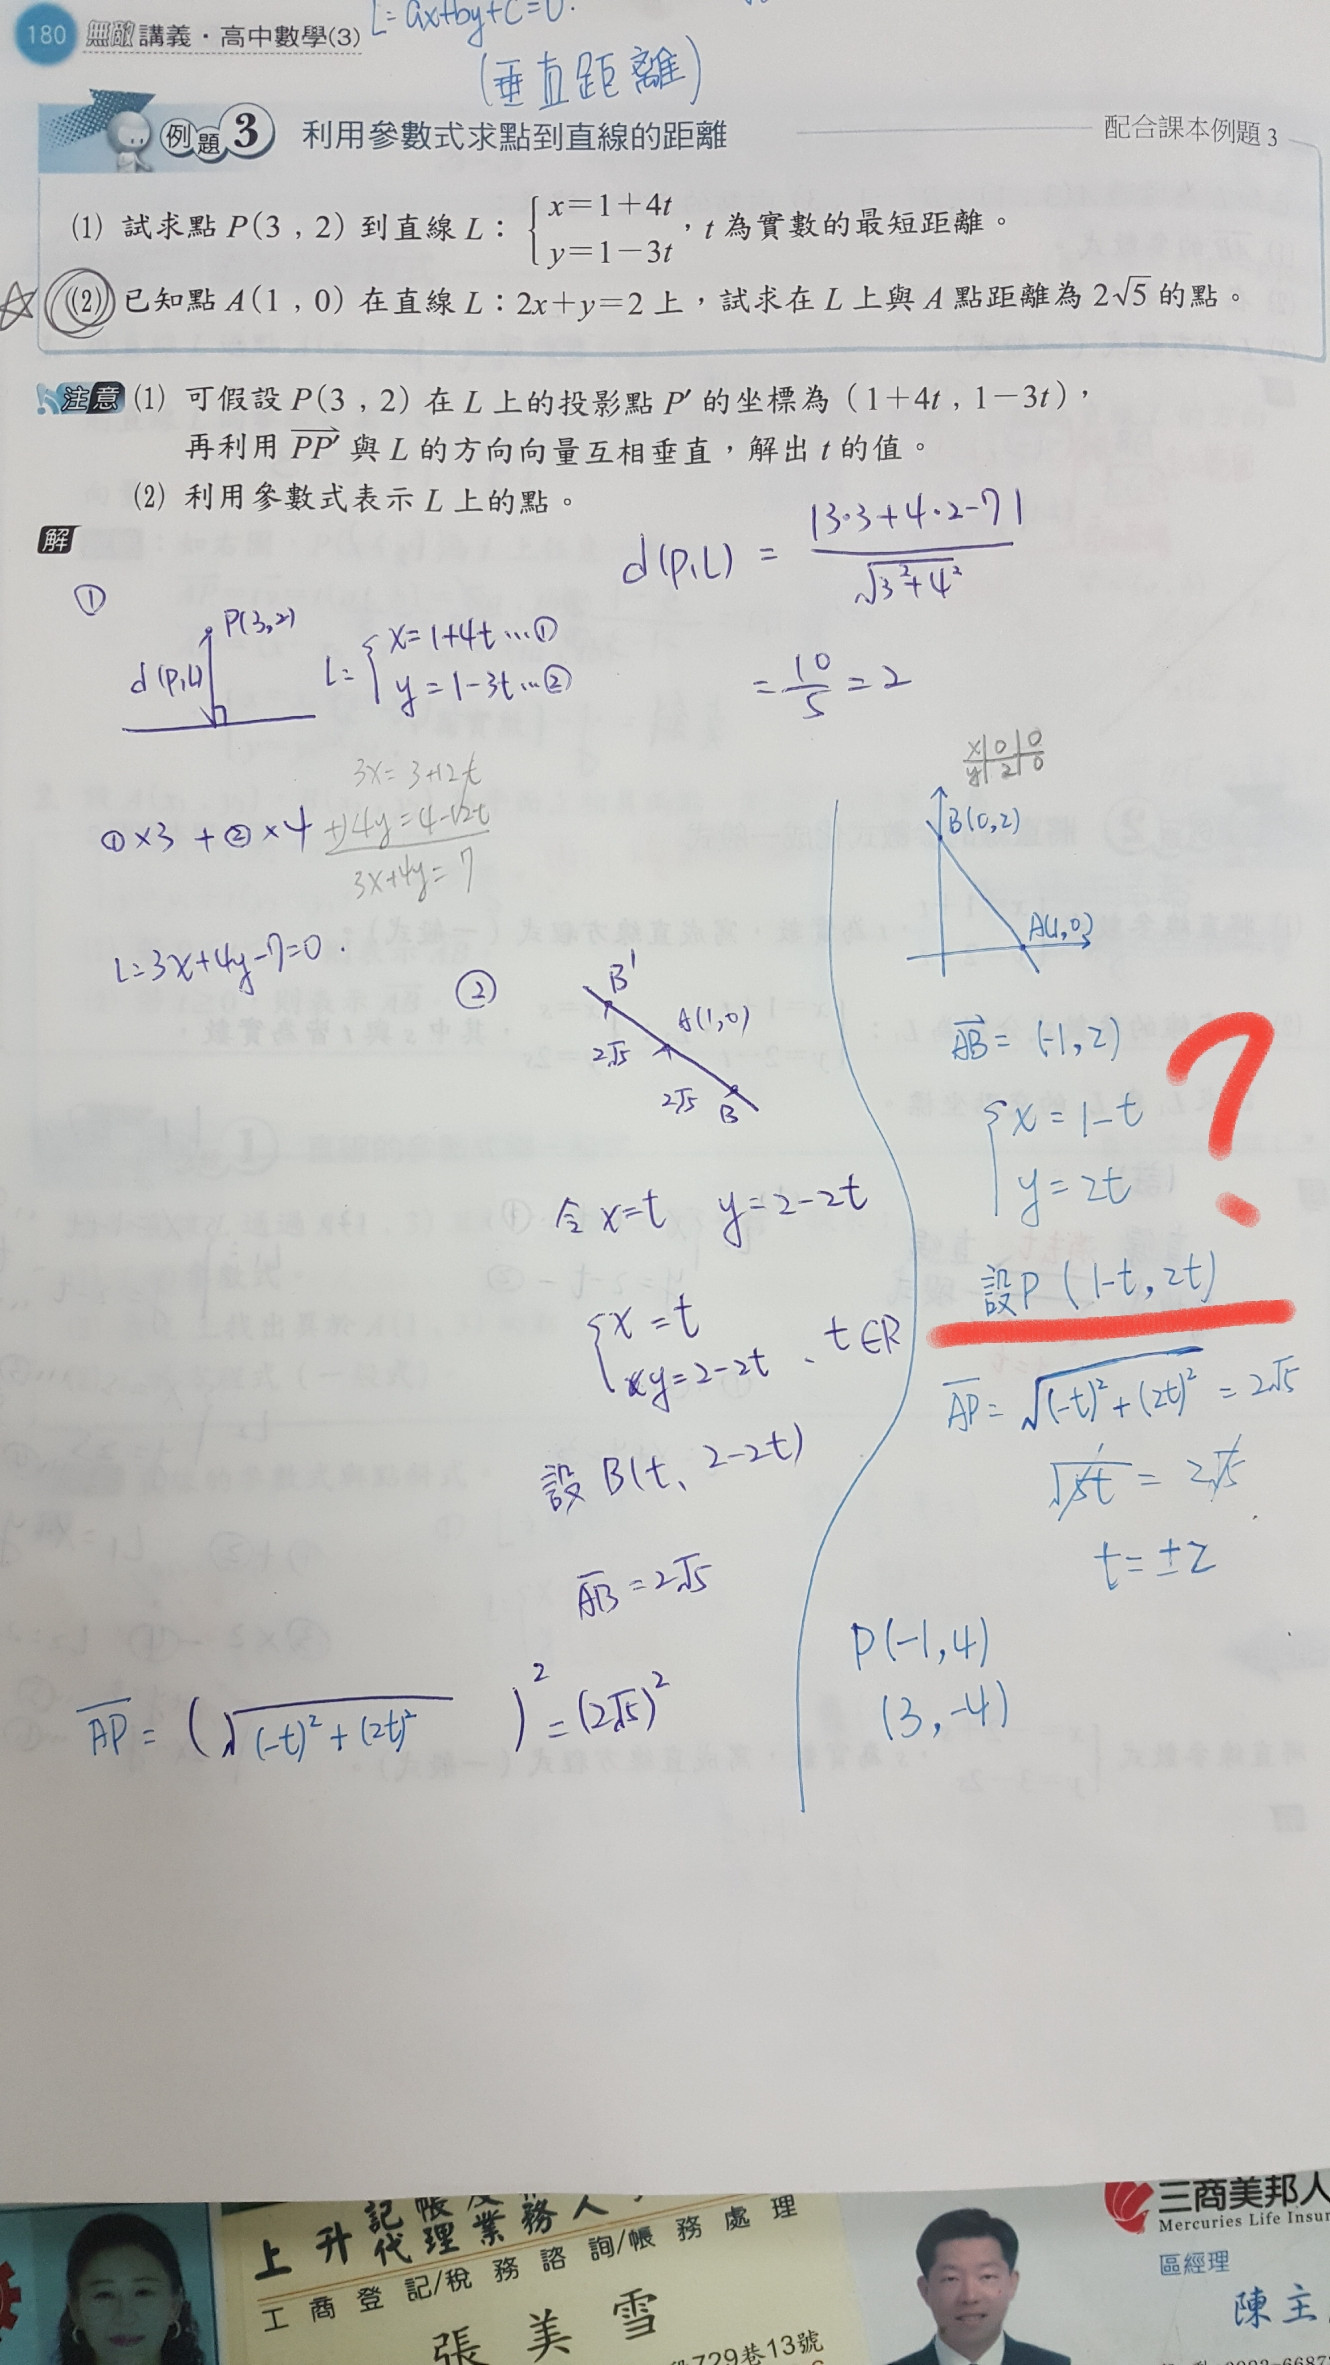 180 無敵講義・高中數學(3)
L=ax+by+C=0.
(垂直距離)
例題3 利用參數式求點到直線的距離
配合課本例題3
(1) 試求點 P(3 , 2) 到直線 L：{x=1+4t
y=1−3t，t 為實數的最短距離。
(2) 已知點 A(1 , 0) 在直線 L：2x+y=2 上，試求在 L 上與 A 點距離為 2√5 的點。
注意 (1) 可假設 P(3 , 2) 在 L 上的投影點 P′ 的坐標為 (1+4t , 1−3t)，
再利用 PP′ 與 L 的方向向量互相垂直，解出 t 的值。
(2) 利用參數式表示 L 上的點。
解
①
P(3,2)
d(P,L)
L= {x=1+4t…①
y=1−3t…②
d(P,L) = |3·3+4·2−7| / √3²+4²
= 10/5 = 2
①×3 + ②×4
3x=3+12t
+)4y=4−12t
3x+4y=7
L=3x+4y−7=0.
②
B'
A(1,0)
2√5
2√5
B
令 x=t y=2−2t
{x=t
y=2−2t 、t∈R
設 B(t、2−2t)
AB=2√5
AP= (√(−t)²+(2t)² )² =(2√5)²
x|0|0
y|2|0
B(0,2)
A(1,0)
AB= (−1,2)
{x=1−t
y=2t
?
設P (1−t, 2t)
AP= √(−t)²+(2t)² = 2√5
√5t = 2√5
t=±2
P(−1,4)
(3,−4)
上升記帳及
代理業務人
工商登記/稅務諮詢/帳務處理
張美雪
729巷13號
三商美邦人
Mercuries Life Insur
區經理
陳主